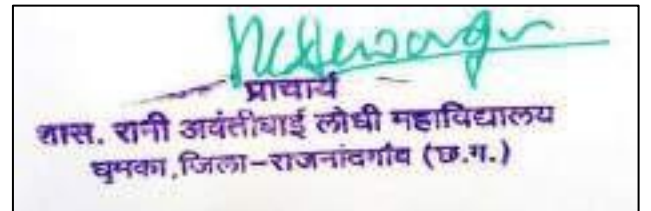 प्राचार्य
शास. रानी अवंतीबाई लोधी महाविद्यालय
घुमका, जिला-राजनांदगाँव (छ.ग.)